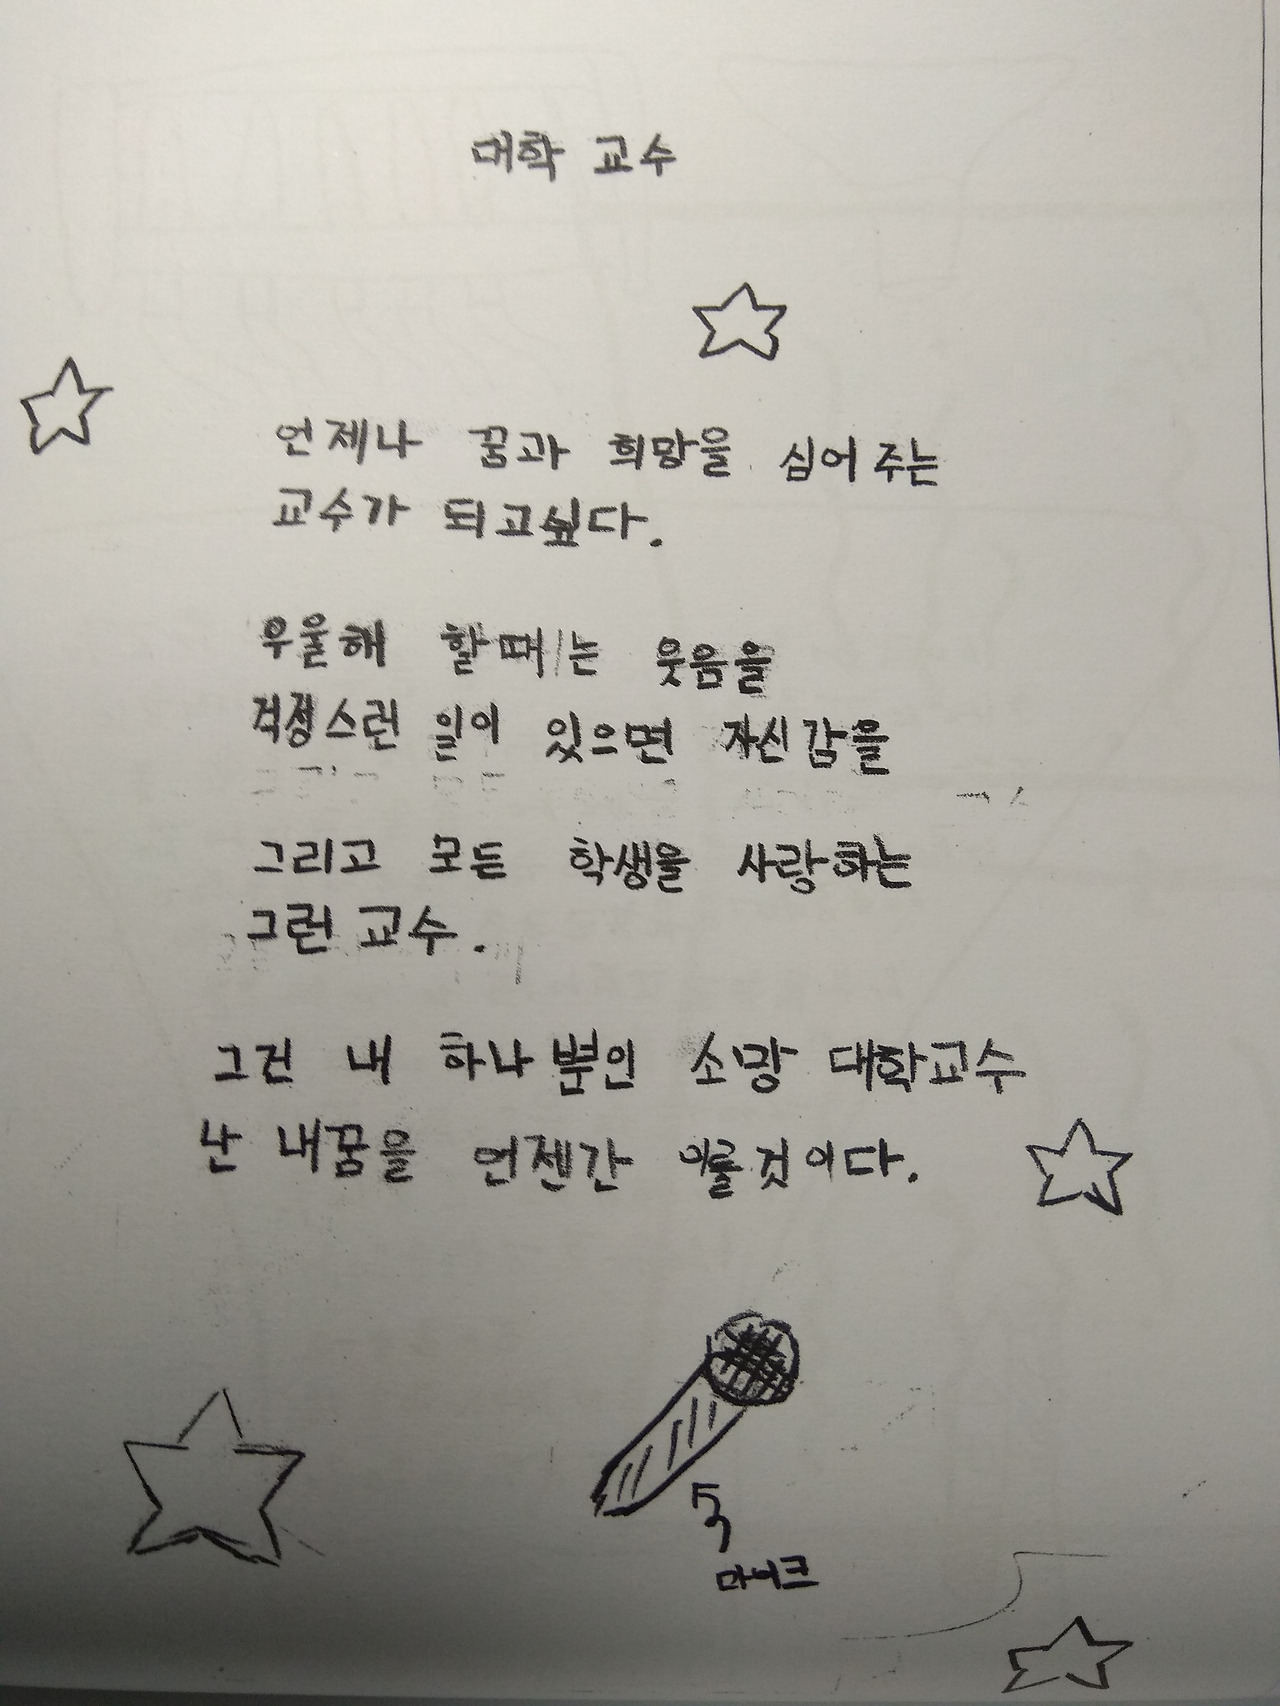 대학 교수
언제나 꿈과 희망을 심어 주는
교수가 되고싶다.
우울해 할때는 웃음을
걱정스런 일이 있으면 자신감을
그리고 모든 학생을 사랑하는
그런 교수.
그건 내 하나뿐인 소망 대학교수
난 내꿈을 언젠간 이룰것이다.
마이크